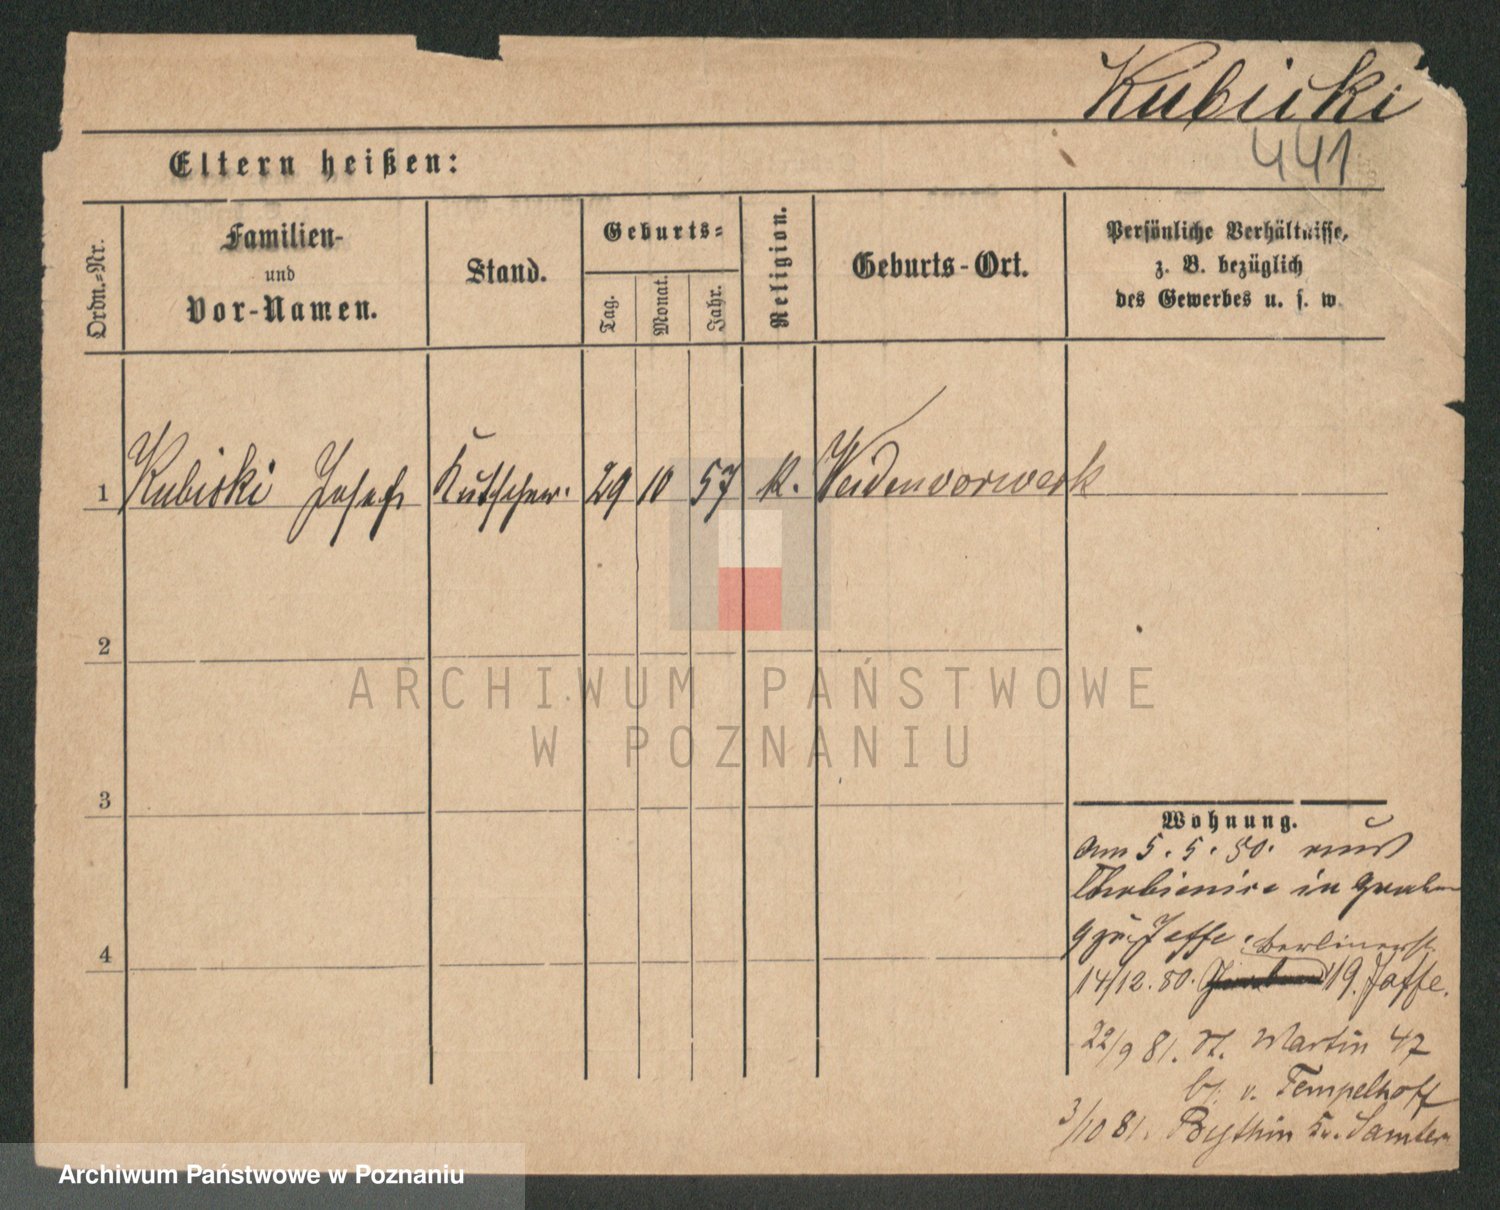 Kubicki
441
Eltern heißen:
Ordn.-Nr.
Familien-
und
Vor-Namen.
Stand.
Geburts-
Tag.
Monat.
Jahr.
Religion.
Geburts-Ort.
Persönliche Verhältnisse,
z. B. bezüglich
des Gewerbes u. s. w.
1 Kubicki Josef Kutscher. 29 10 57 K. Weidenvorwerk
2
3
4
ARCHIWUM PAŃSTWOWE
W POZNANIU
Wohnung.
am 5. 5. 80. aus
in
9 zu Jaffe. Berlinerst.
14/12. 80. 19. Jaffe.
22/9 81. St. Martin 47
b. v. Tempelhoff
3/10 81. Bythin Kr. Samter
Archiwum Państwowe w Poznaniu